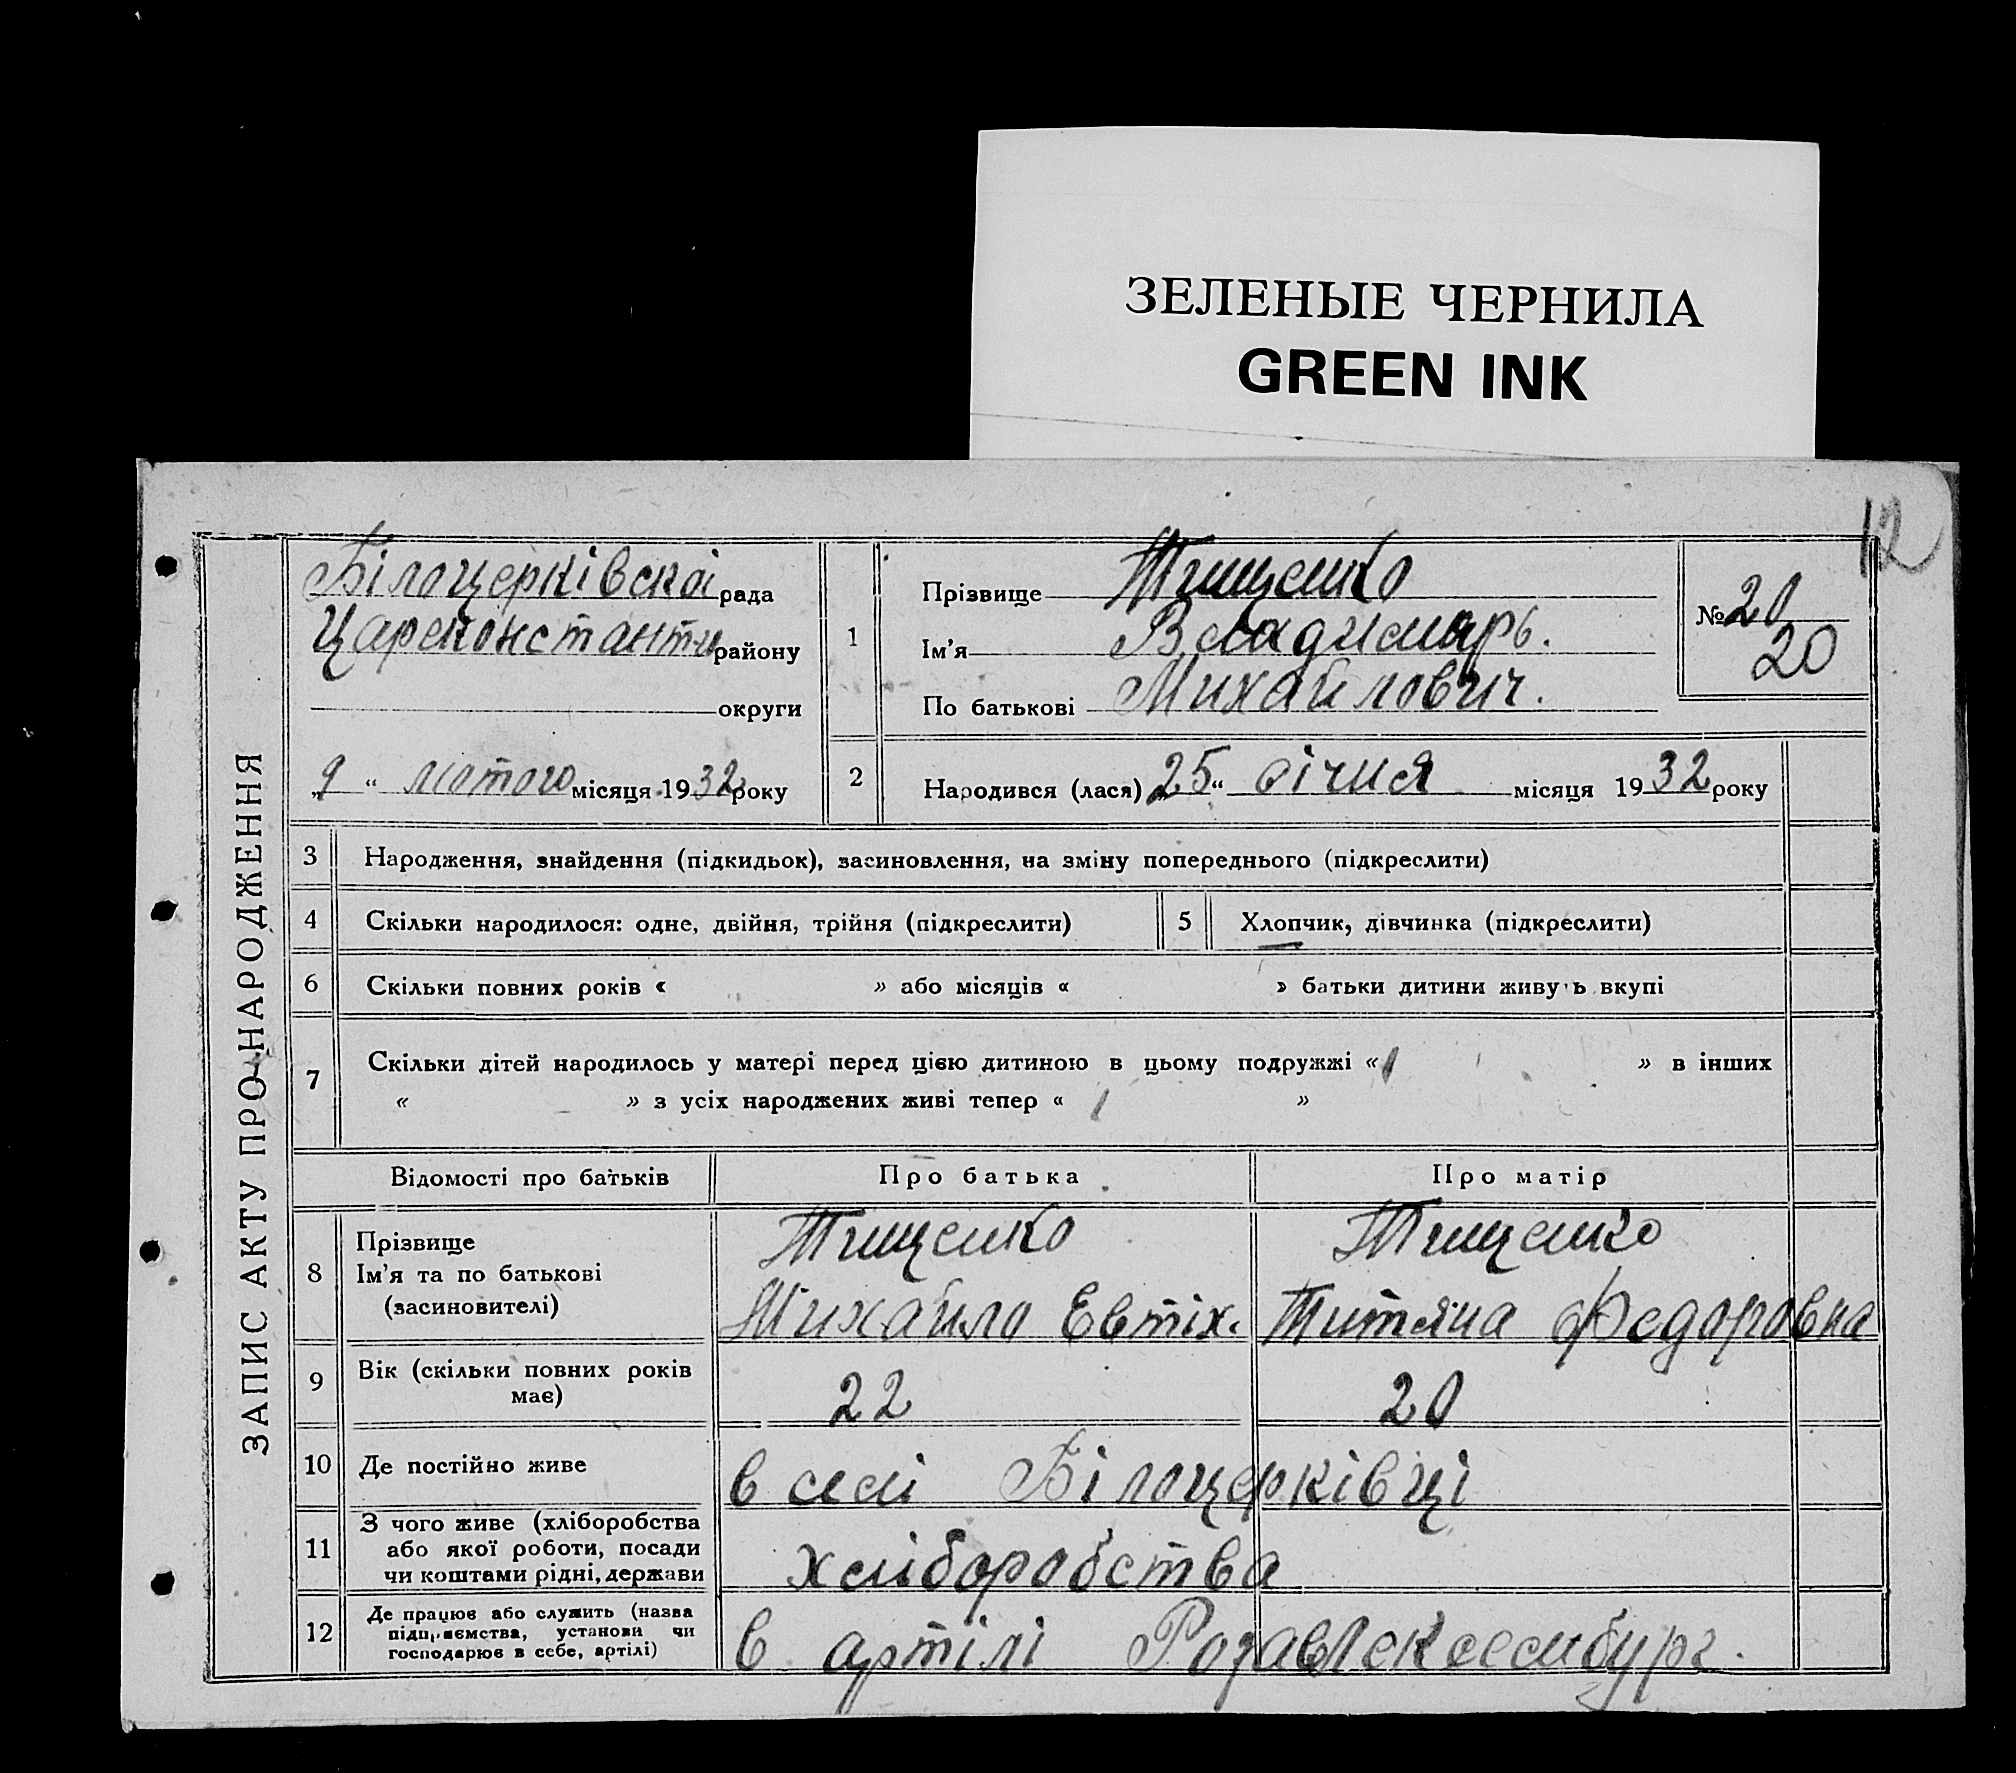 ЗЕЛЕНЫЕ ЧЕРНИЛА
GREEN INK
12
ЗАПИС АКТУ ПРО НАРОДЖЕННЯ
Білоцерківскоі рада
Царекокстанти району
округи
„9“ лютого місяця 1932 року
1
Прізвище Тищенко
Ім'я Владимирь.
По батькові Михайлович.
№ 20
20
2 Народився (лася) 25 “ січня місяця 1932 року
3 Народження, знайдення (підкидьок), засиновлення, на зміну попереднього (підкреслити)
4 Скільки народилося: одне, двійня, трійня (підкреслити) 5 Хлопчик, дівчинка (підкреслити)
6 Скільки повних років « » або місяців « » батьки дитини живуть вкупі
7 Скільки дітей народилось у матері перед цією дитиною в цьому подружжі «1 » в інших
« » з усіх народжених живі тепер « 1 »
Відомості про батьків Про батька Про матір
8 Прізвище Тищенко Тищенко
Ім'я та по батькові
(засиновителі) Михайло Евтіх. Титяна Федоровна
9 Вік (скільки повних років
має) 22 20
10 Де постійно живе в селі Білоцерківці
11 З чого живе (хліборобства
або якої роботи, посади
чи коштами рідні, держави хліборобства
12 Де працює або служить (назва
підприємства, установи чи
господарює в себе, артілі) в артілі